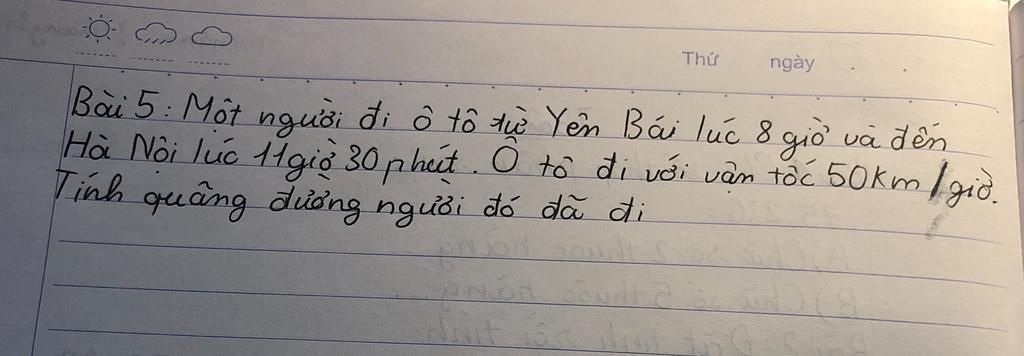 Thứ ngày
Bài 5: Một người đi ô tô từ Yên Bái lúc 8 giờ và đến
Hà Nội lúc 11giờ 30 phút. Ô tô đi với vận tốc 50km/giờ.
Tính quãng đường người đó đã đi